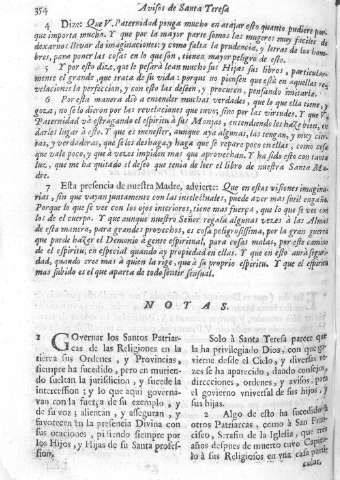 354 Avisos de Santa Teresa
4 Dize: Que V. Paternidad ponga mucho en atajar esto quanto pudiere por-
que importa mucho. Y que por la mayor parte somos las mugeres muy faciles de
dexarnos llevar de imaginaciones: y como falta la prudencia, y letras de los hom-
bres, para poner las cosas en lo que son, tienen mayor peligro de esto.
5 Y por esto dize, que le pesarà lean mucho sus Hijas sus libros, particular-
mente el grande, que trata de su vida: porque no piensen que està en aquellas re-
velaciones la perfeccion, y con esto las deseen, y procuren, pensando imitarla.
6 Por esta manera diò a entender muchas verdades, que lo que ella tiene, y
goza, no se lo dieron por las revelaciones que tuvo, sino por las virtudes. Y que V.
Paternidad và estragando el espiritu à sus Monjas, entendiendo les haze bien, en
darles lugar à esto. Y que es menester, aunque aya algunas, las tengan, y muy cier-
tas, y verdaderas, que se les deshaga, y haga que se repare poco en ellas, como cosa
que vale poco, y que à veces impiden mas que aprovechan. Y ha sido esto con tanta
luz, que me ha quitado el deseo que tenia de leer el libro de nuestra Santa Ma-
dre.
7 Esta presencia de nuestra Madre, advierte: Que en estas visiones imagina-
rias, sin que vayan juntamente con las intelectuales, puede aver mas sutil engaño.
Porque lo que se ve con los ojos interiores, tiene mas fuerça, que lo que se ve con
los de el cuerpo. Y que aunque nuestro Señor regala algunas veces à las Almas
de esta manera, para grandes provechos, es cosa peligrosissima, por la gran guerra
que puede hazer el Demonio à gente espiritual, para cosas malas, por este camino
de el espiritu, en especial quando ay propiedad en ellas. Y que en esto aurà segur-
dad, quando cree mas à quien la rige, que à su proprio espiritu. Y que el espiritu
mas subido es el que aparta de todo sentir sensual.
NOTAS.
1 Governar los Santos Patriar-
cas de las Religiones en la
tierra sus Ordenes, y Provincias,
siempre ha sucedido, pero en murien-
do sueltan la jurisdicion, y sucede la
intercession; y lo que aqui governa-
van con la fuerça de su exemplo, y
de su voz; alientan, y asseguran, y
favorecen en la presencia Divina con
sus oraciones, pidiendo siempre por
los Hijos, y Hijas de su Santa profes-
sion.
Solo à Santa Teresa parece que
la ha privilegiado Dios, con que go-
vierne desde el Cielo, y diversas ve-
zes se ha aparecido, dando consejos,
direcciones, ordenes, y avisos, para
el govierno vniversal de sus hijos, y
sus hijas.
2 Algo de esto ha sucedido à
otros Patriarcas, como à San Fran-
cisco, Serafin de la Iglesia, que tres
años despues de muerto tuvo Capitu-
lo à sus Religiosos en vna casa parti-
cular,